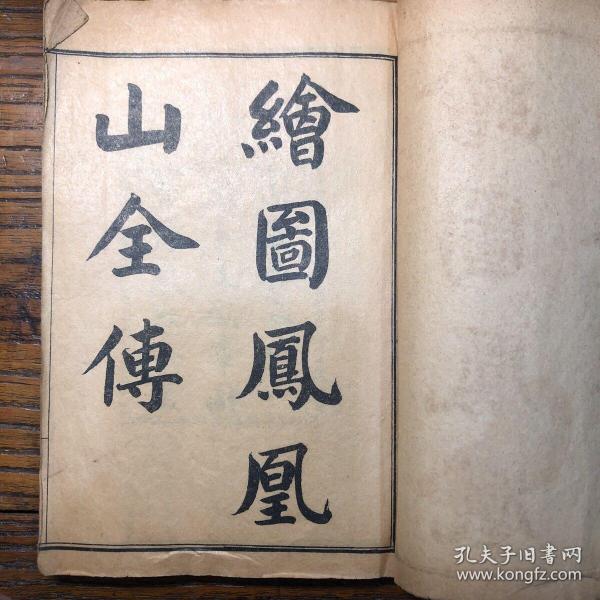 繪圖鳳凰
山全傳
孔夫子旧書网
www.kongfz.com